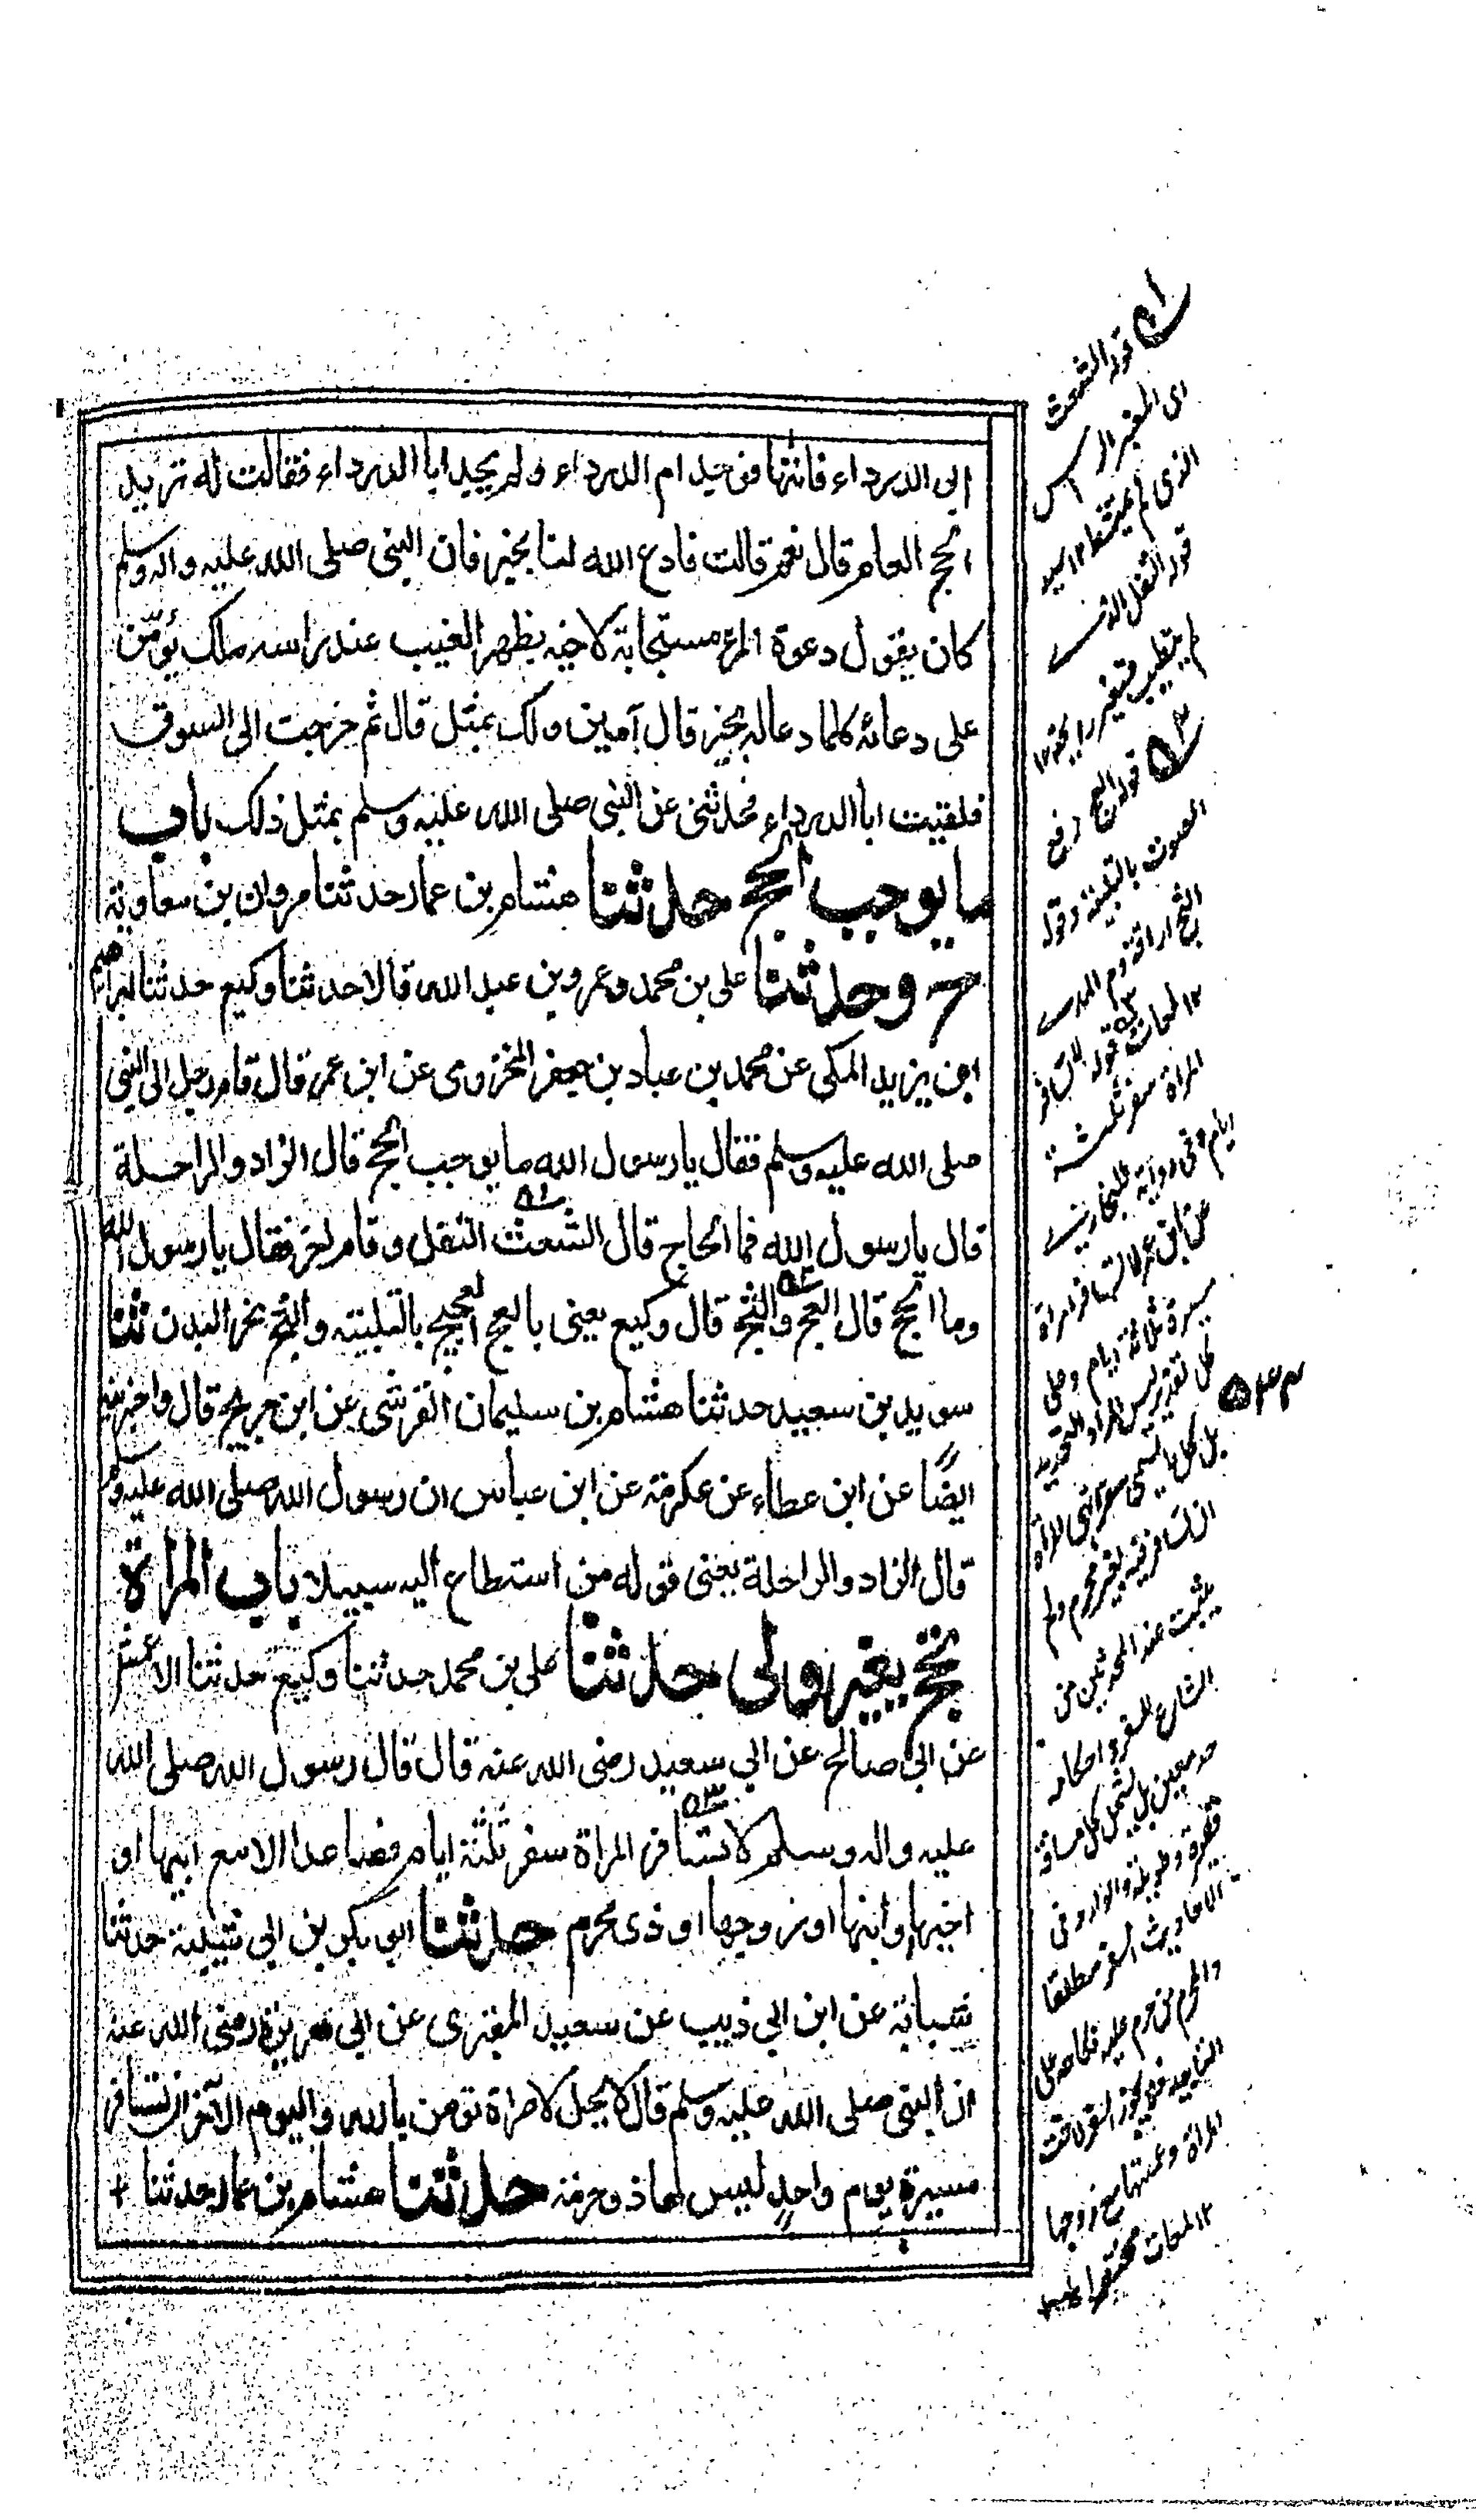 ابى الدرداء فاتتها فوجد ام الدرداء ولم يجد ابا الدرداء فقالت له تريد
الحج العام قال نعم قالت فادع الله لنا بخير فان النبى صلى الله عليه واله وسلم
كان يقول دعوة المرء مستجابة لاخيه بظهر الغيب عند راسه ملك يؤمن
على دعائه كلما دعا له بخير قال آمين ولك بمثل قال ثم خرجت الى السوق
فلقيت ابا الدرداء فحدثنى عن النبى صلى الله عليه وسلم بمثل ذلك باب
ما يوجب الحج حدثنا هشام بن عمار حدثنا مروان بن معاوية
ح وحدثنا على بن محمد وعمرو بن عبد الله قالا حدثنا وكيع حدثنا ابراهيم
ابن يزيد المكى عن محمد بن عباد بن جعفر المخزومى عن ابن عمر قال قام رجل الى النبى
صلى الله عليه وسلم فقال يا رسول الله ما يوجب الحج قال الزاد والراحلة
قال يا رسول الله فما الحاج قال الشعث التفل وقام اخر فقال يا رسول الله
وما الحج قال العج والثج قال وكيع يعنى بالعج العجيج بالتلبية والثج نحر البدن ثنا
سويد بن سعيد حدثنا هشام بن سليمان القرشى عن ابن جريج قال واخبرنيه
ايضًا عن ابن عطاء عن عكرمة عن ابن عباس ان رسول الله صلى الله عليه وسلم
قال الزاد والراحلة يعنى قوله من استطاع اليه سبيلا باب المراة
تحج بغير ولى حدثنا على بن محمد حدثنا وكيع حدثنا الاعمش
عن ابى صالح عن ابى سعيد رضى الله عنه قال قال رسول الله صلى الله
عليه واله وسلم لا تسافر المراة سفر ثلثة ايام فصاعدا الا مع ابيها او
اخيها او ابنها او زوجها او ذى محرم حدثنا ابو بكر بن ابى شيبة حدثنا
شبابة عن ابن ابى ذيب عن سعيد المقبرى عن ابى هريرة رضى الله عنه
ان النبى صلى الله عليه وسلم قال لا يحل لامراة تومن بالله واليوم الآخر ان تسافر
مسيرة يوم واحدٍ ليس لها ذو حرمة حدثنا هشام بن عمار حدثنا
قوله الشعث
اى المغبر الراس
الذى لم يمتشط
قوله التفل الذى
لم يتطيب فتغير رايحته ١٢
قوله العج رفع
الصوت بالتلبية وقوله
الثج اراقة دم الهدى
١٢ لمعات قوله لا تسافر
المراة سفر ثلثة
ايام وفى رواية للبخارى
عن ابن عمر لا تسافر امراة
مسيرة ثلاثة ايام وعلى
كل تقدير ليس المراد التحديد
بل كل ما يسمى سفرا نهى المراة
ان تسافر فيه بغير محرم ولم
يثبت عند المحدثين من
الشارع للسفر واحكامه
حد معين بل يشمل كل مسافة
قصيرة وطويلة والوارد فى
الاحاديث السفر مطلقا
والمحرم من حرم عليه نكاحه على
التابيد فلا يجوز السفر لاخت
المراة وعمتها مع زوجها
١٢ لمعات مختصرا